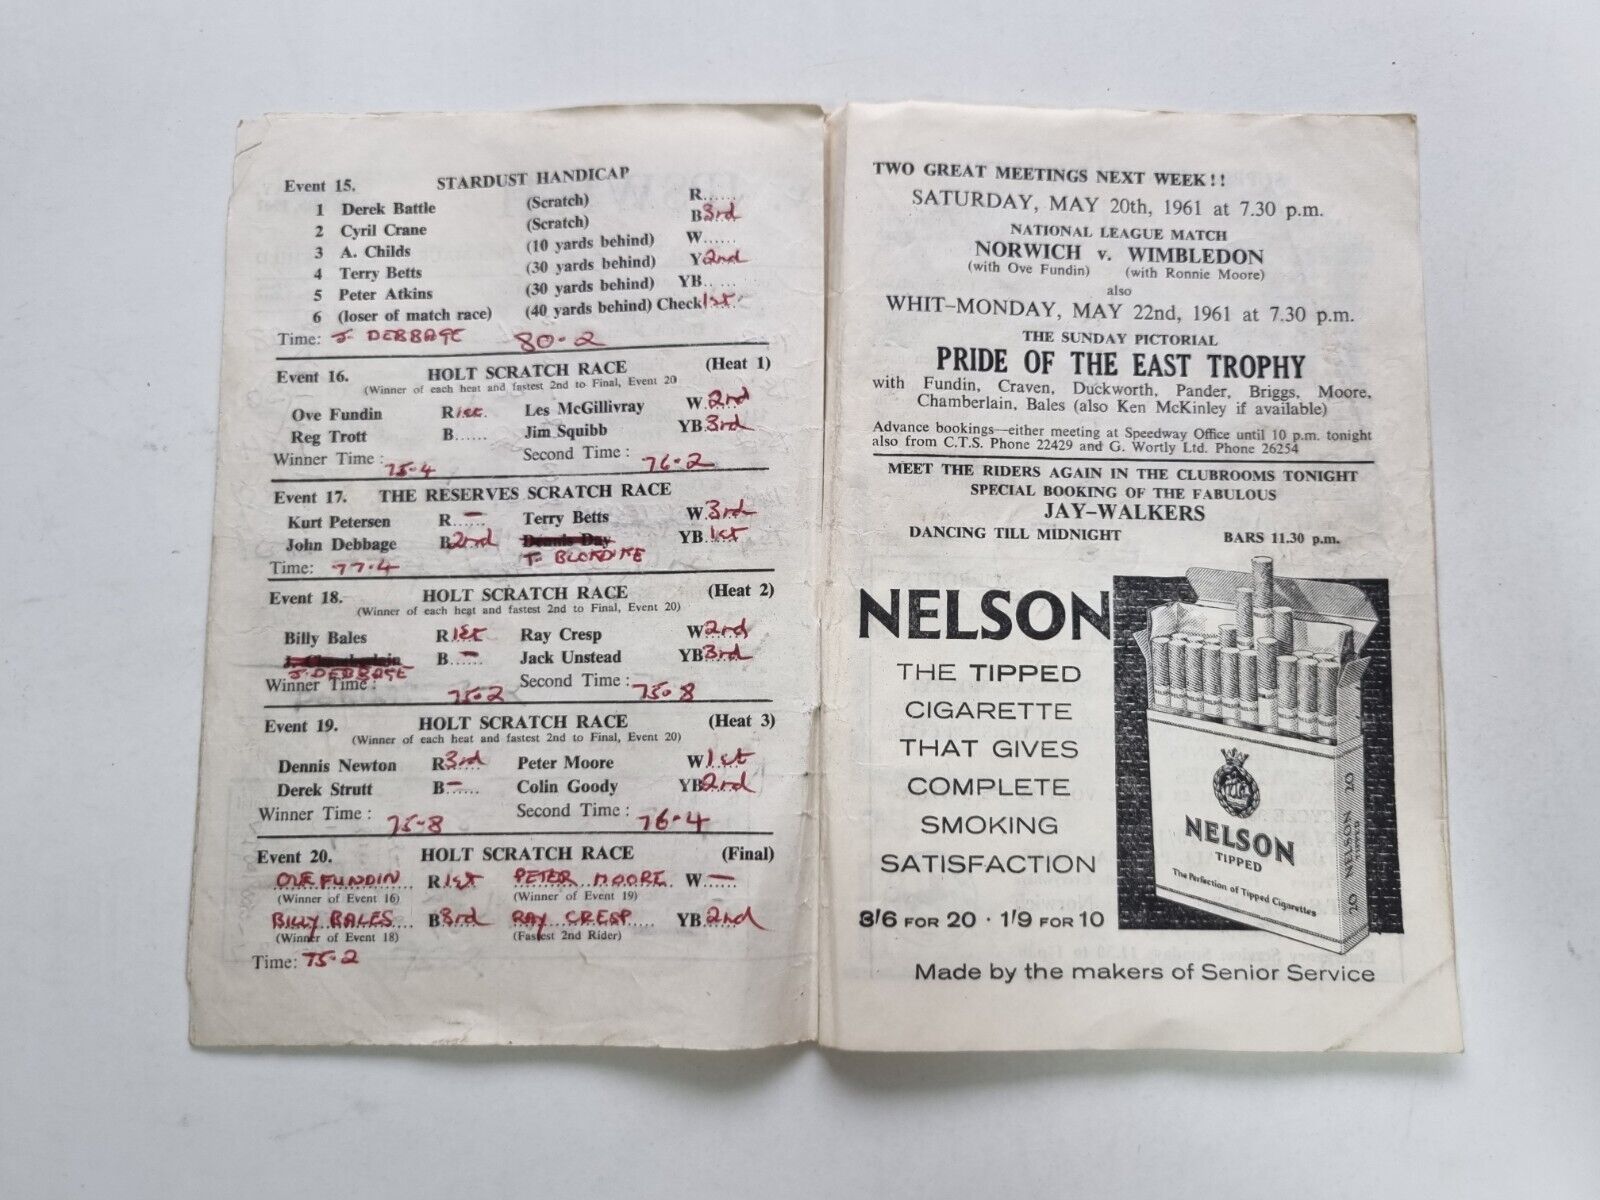 Event 15. STARDUST HANDICAP
1 Derek Battle (Scratch) R......
2 Cyril Crane (Scratch) B 3rd
3 A. Childs (10 yards behind) W......
4 Terry Betts (30 yards behind) Y 2nd
5 Peter Atkins (30 yards behind) YB......
6 (loser of match race) (40 yards behind) Check 1st
Time: J. DEBBAGE 80.2
Event 16. HOLT SCRATCH RACE (Heat 1)
(Winner of each heat and fastest 2nd to Final, Event 20
Ove Fundin R 1st Les McGillivray W 2nd
Reg Trott B...... Jim Squibb YB 3rd
Winner Time: 75.4 Second Time: 76.2
Event 17. THE RESERVES SCRATCH RACE
Kurt Petersen R – Terry Betts W 3rd
John Debbage B 2nd Dennis Day YB 1st
Time: 77.4 T. BLONDIKE
Event 18. HOLT SCRATCH RACE (Heat 2)
(Winner of each heat and fastest 2nd to Final, Event 20)
Billy Bales R 1st Ray Cresp W 2nd
J. Chamberlain B – Jack Unstead YB 3rd
J. DEBBAGE
Winner Time: 75.2 Second Time: 75.8
Event 19. HOLT SCRATCH RACE (Heat 3)
(Winner of each heat and fastest 2nd to Final, Event 20)
Dennis Newton R 3rd Peter Moore W 1st
Derek Strutt B – Colin Goody YB 2nd
Winner Time: 75.8 Second Time: 76.4
Event 20. HOLT SCRATCH RACE (Final)
OVE FUNDIN R 1st PETER MOORE W –
(Winner of Event 16) (Winner of Event 19)
BILLY BALES B 3rd RAY CRESP YB 2nd
(Winner of Event 18) (Fastest 2nd Rider)
Time: 75.2
TWO GREAT MEETINGS NEXT WEEK!!
SATURDAY, MAY 20th, 1961 at 7.30 p.m.
NATIONAL LEAGUE MATCH
NORWICH v. WIMBLEDON
(with Ove Fundin) (with Ronnie Moore)
also
WHIT-MONDAY, MAY 22nd, 1961 at 7.30 p.m.
THE SUNDAY PICTORIAL
PRIDE OF THE EAST TROPHY
with Fundin, Craven, Duckworth, Pander, Briggs, Moore,
Chamberlain, Bales (also Ken McKinley if available)
Advance bookings—either meeting at Speedway Office until 10 p.m. tonight
also from C.T.S. Phone 22429 and G. Wortly Ltd. Phone 26254
MEET THE RIDERS AGAIN IN THE CLUBROOMS TONIGHT
SPECIAL BOOKING OF THE FABULOUS
JAY-WALKERS
DANCING TILL MIDNIGHT BARS 11.30 p.m.
NELSON
THE TIPPED
CIGARETTE
THAT GIVES
COMPLETE
SMOKING
SATISFACTION
3/6 FOR 20 · 1/9 FOR 10
NELSON
TIPPED
The Perfection of Tipped Cigarettes
20 NELSON TIPPED 20
Made by the makers of Senior Service